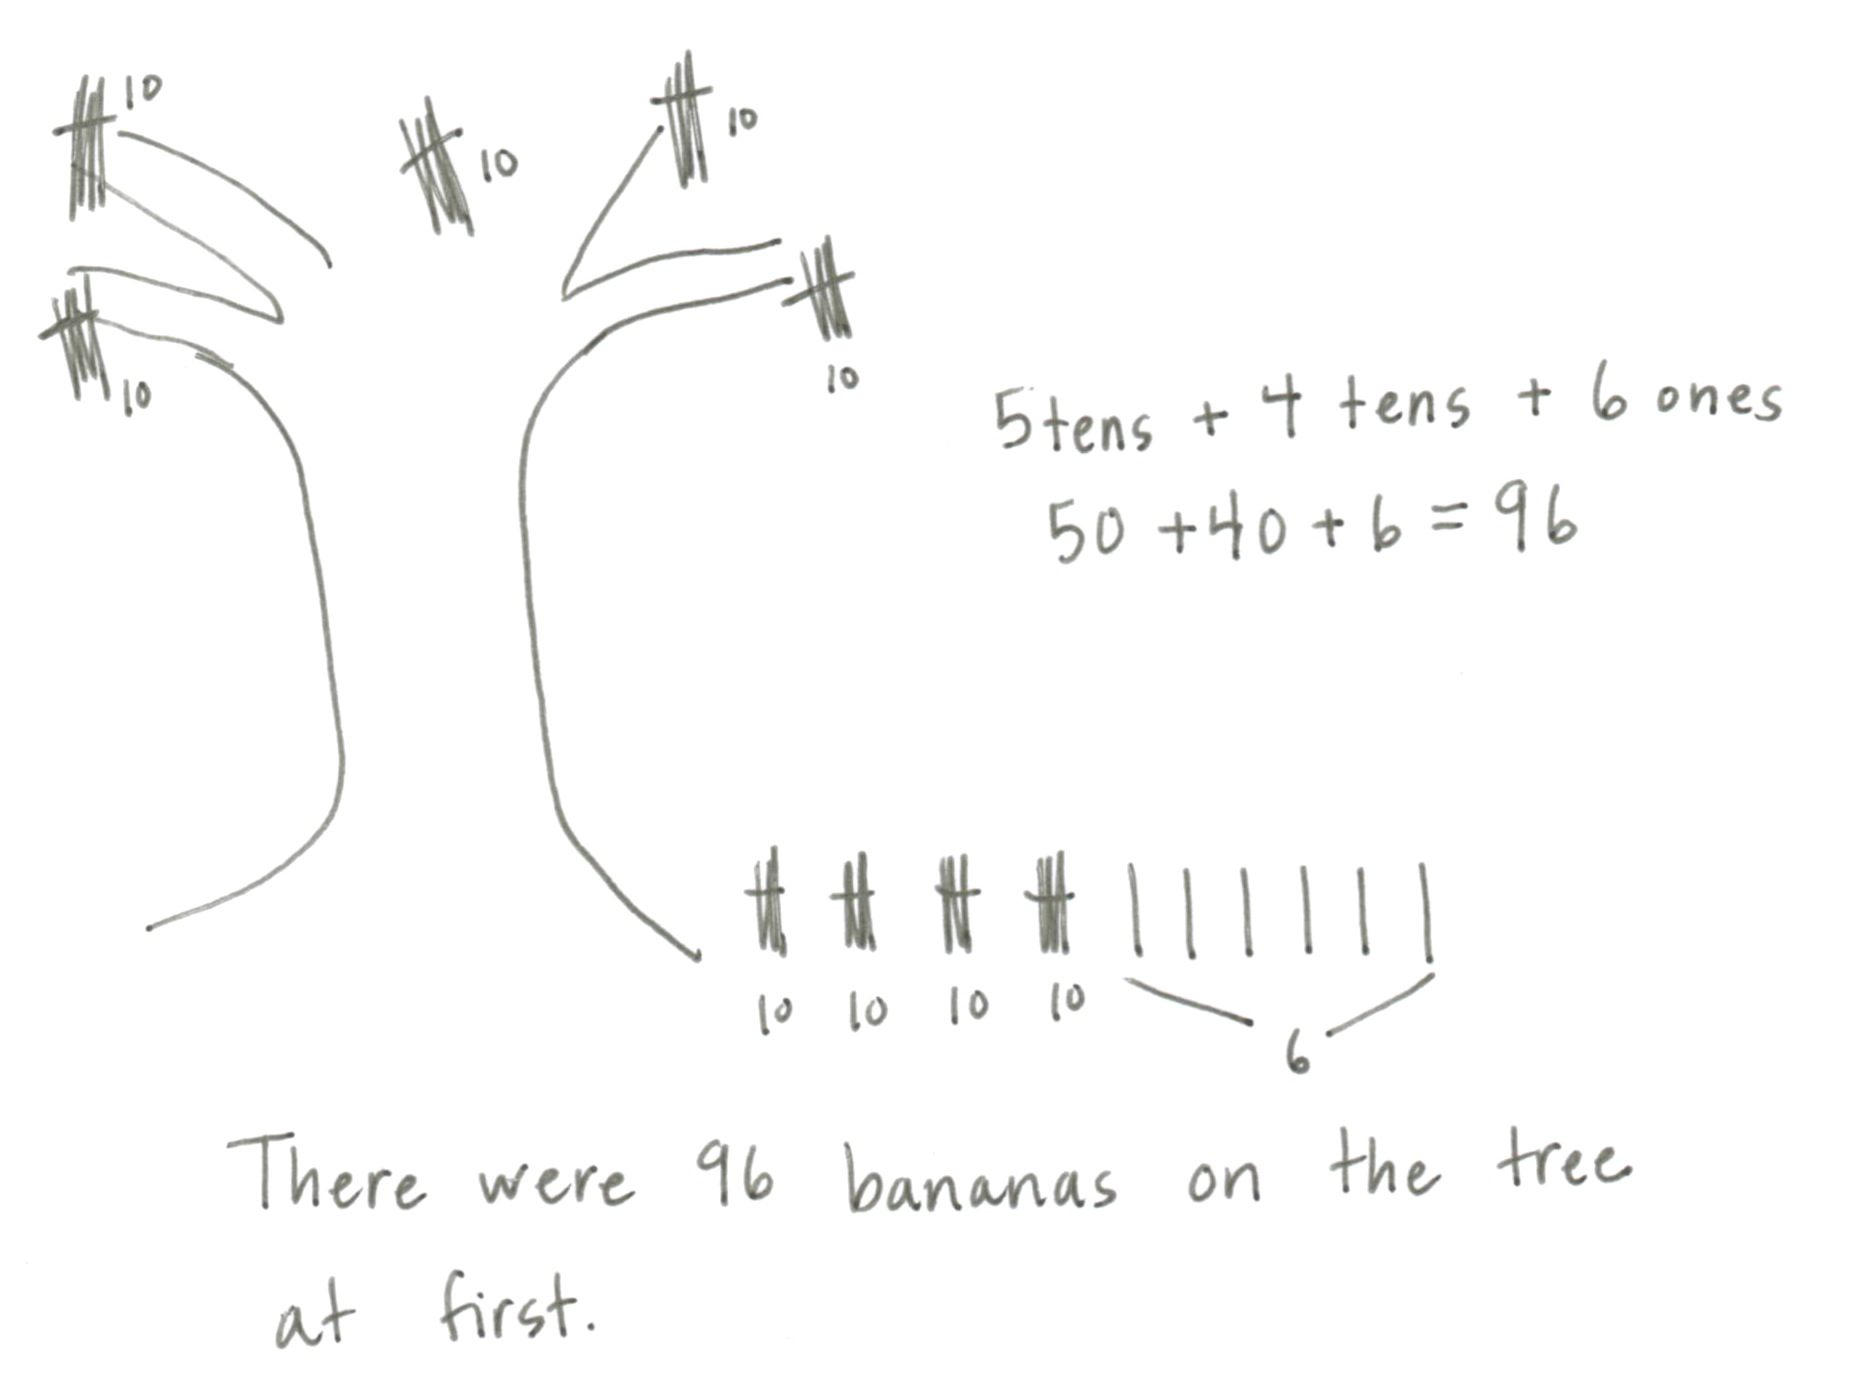 10
10
10
10
10
5 tens + 4 tens + 6 ones
50 + 40 + 6 = 96
10 10 10 10
6
There were 96 bananas on the tree
at first.